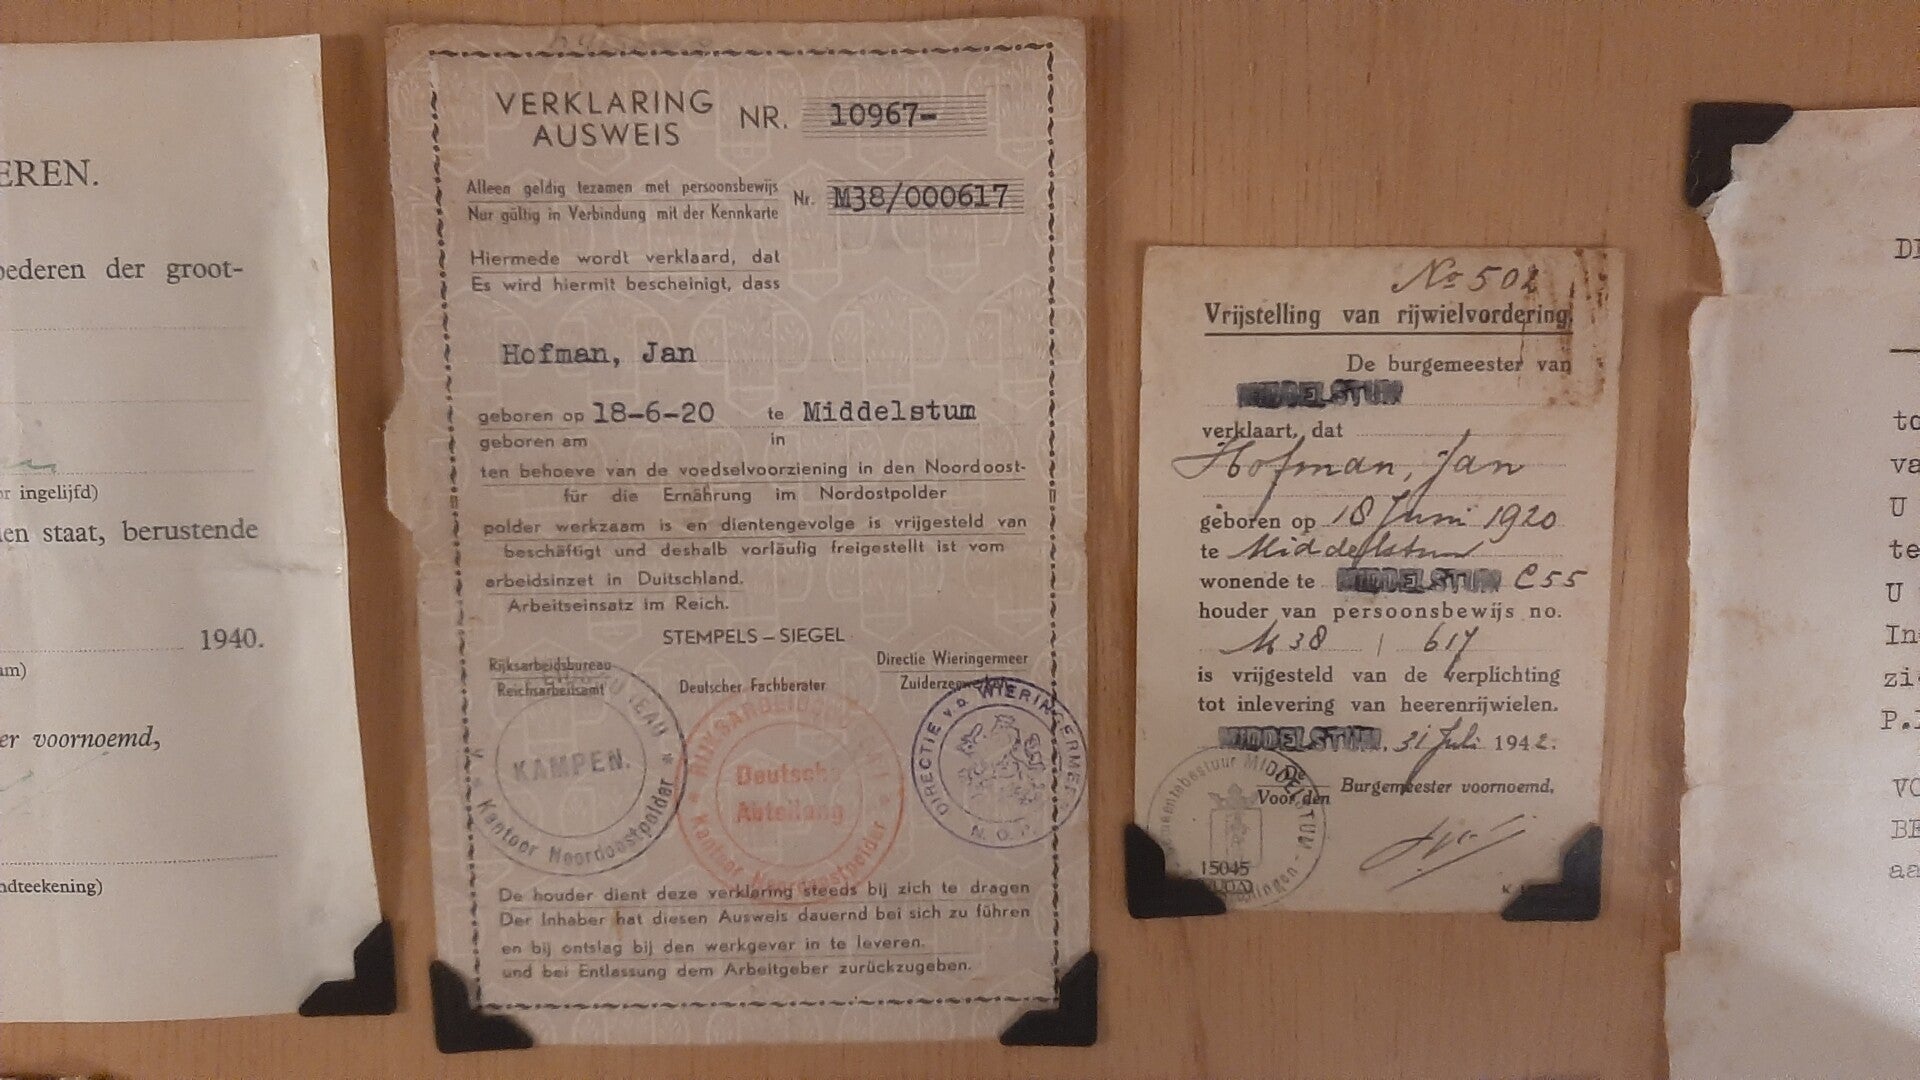 EREN.
oederen der groot-
or ingelijfd)
en staat, berustende
1940.
er voornoemd,
ndteekening)
VERKLARING
AUSWEIS
NR. 10967-
Alleen geldig tezamen met persoonsbewijs
Nur gültig in Verbindung mit der Kennkarte
Nr. M38/000617
Hiermede wordt verklaard, dat
Es wird hiermit bescheinigt, dass
Hofman, Jan
geboren op 18-6-20 te Middelstum
geboren am in
ten behoeve van de voedselvoorziening in den Noordoost-
für die Ernährung im Nordostpolder
polder werkzaam is en dientengevolge is vrijgesteld van
beschäftigt und deshalb vorläufig freigestellt ist vom
arbeidsinzet in Duitschland.
Arbeitseinsatz im Reich.
STEMPELS – SIEGEL
Rijksarbeidsbureau
Reichsarbeitsamt
Deutscher Fachberater
Directie Wieringermeer
KAMPEN.
Kantoor Noordoostpolder
RIJKSARBEIDSBUREAU
Deutsche
Abteilung
Kantoor Noordoostpolder
DIRECTIE v.d. WIERINGERMEER
N.O.P.
De houder dient deze verklaring steeds bij zich te dragen
Der Inhaber hat diesen Ausweis dauernd bei sich zu führen
en bij ontslag bij den werkgever in te leveren.
und bei Entlassung dem Arbeitgeber zurückzugeben.
No 502
Vrijstelling van rijwielvordering
De burgemeester van
MIDDELSTUM
verklaart, dat
Hofman, Jan
geboren op 18 Juni 1920
te Middelstum
wonende te MIDDELSTUM C 55
houder van persoonsbewijs no.
M 38 | 617
is vrijgesteld van de verplichting
tot inlevering van heerenrijwielen.
MIDDELSTUM, 31 Juli 1942.
De
Voor den Burgemeester voornoemd,
Gemeentebestuur MIDDELSTUM
15045
to
va
U
te
U
In
P.
VO
BE
aa